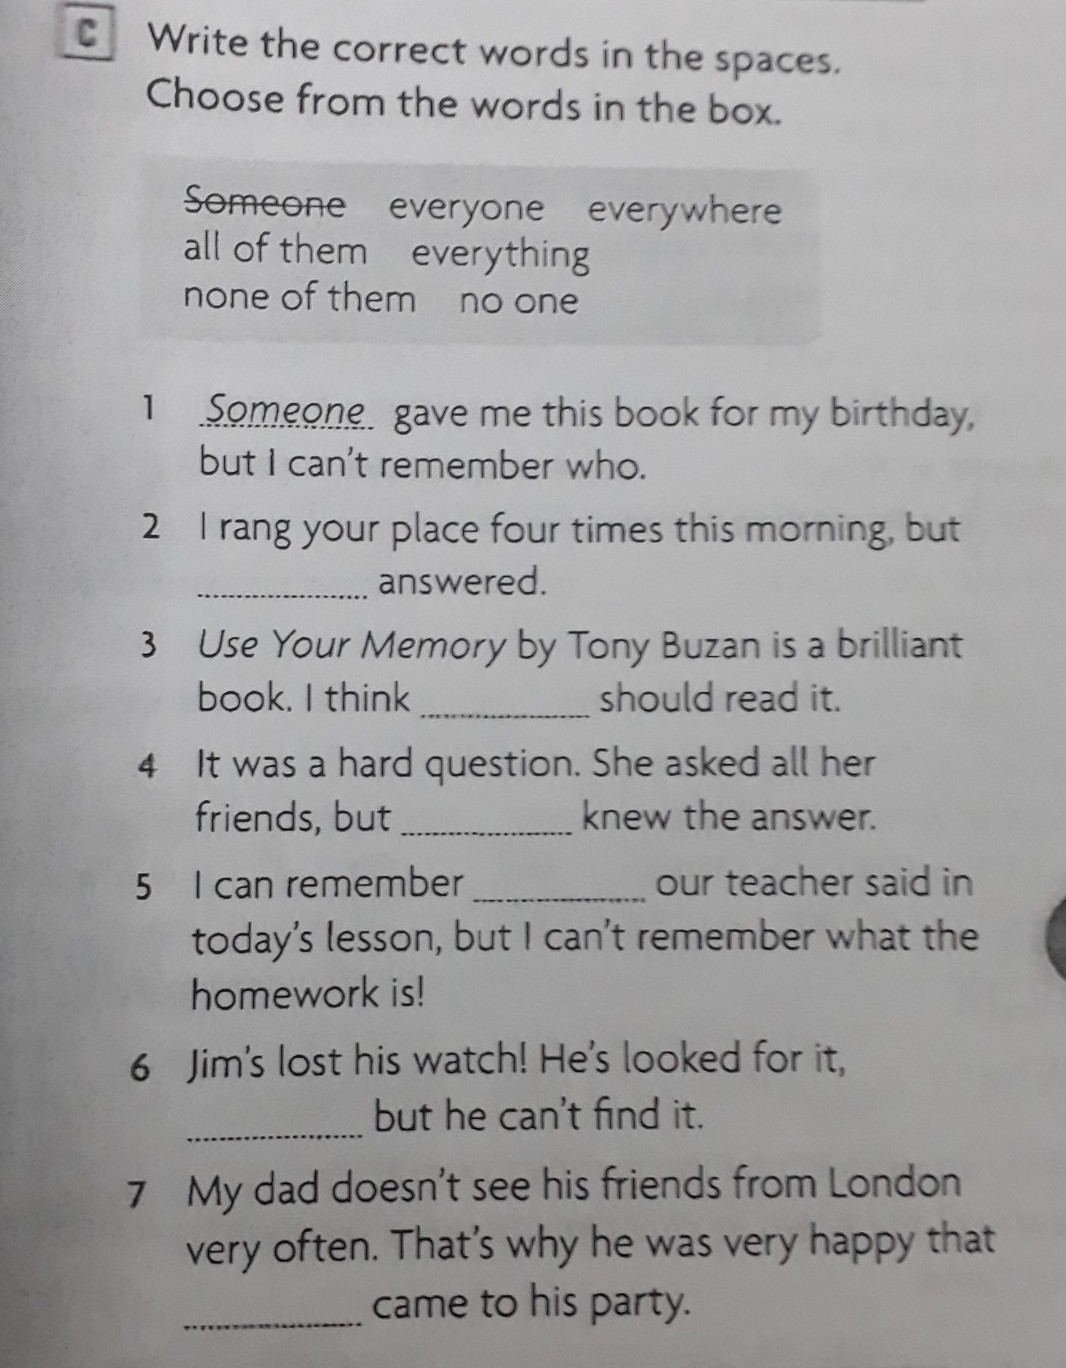 C Write the correct words in the spaces.
Choose from the words in the box.
Someone everyone everywhere
all of them everything
none of them no one
1 Someone gave me this book for my birthday,
but I can't remember who.
2 I rang your place four times this morning, but
.................... answered.
3 Use Your Memory by Tony Buzan is a brilliant
book. I think .................... should read it.
4 It was a hard question. She asked all her
friends, but .................... knew the answer.
5 I can remember .................... our teacher said in
today's lesson, but I can't remember what the
homework is!
6 Jim's lost his watch! He's looked for it,
.................... but he can't find it.
7 My dad doesn't see his friends from London
very often. That's why he was very happy that
.................... came to his party.